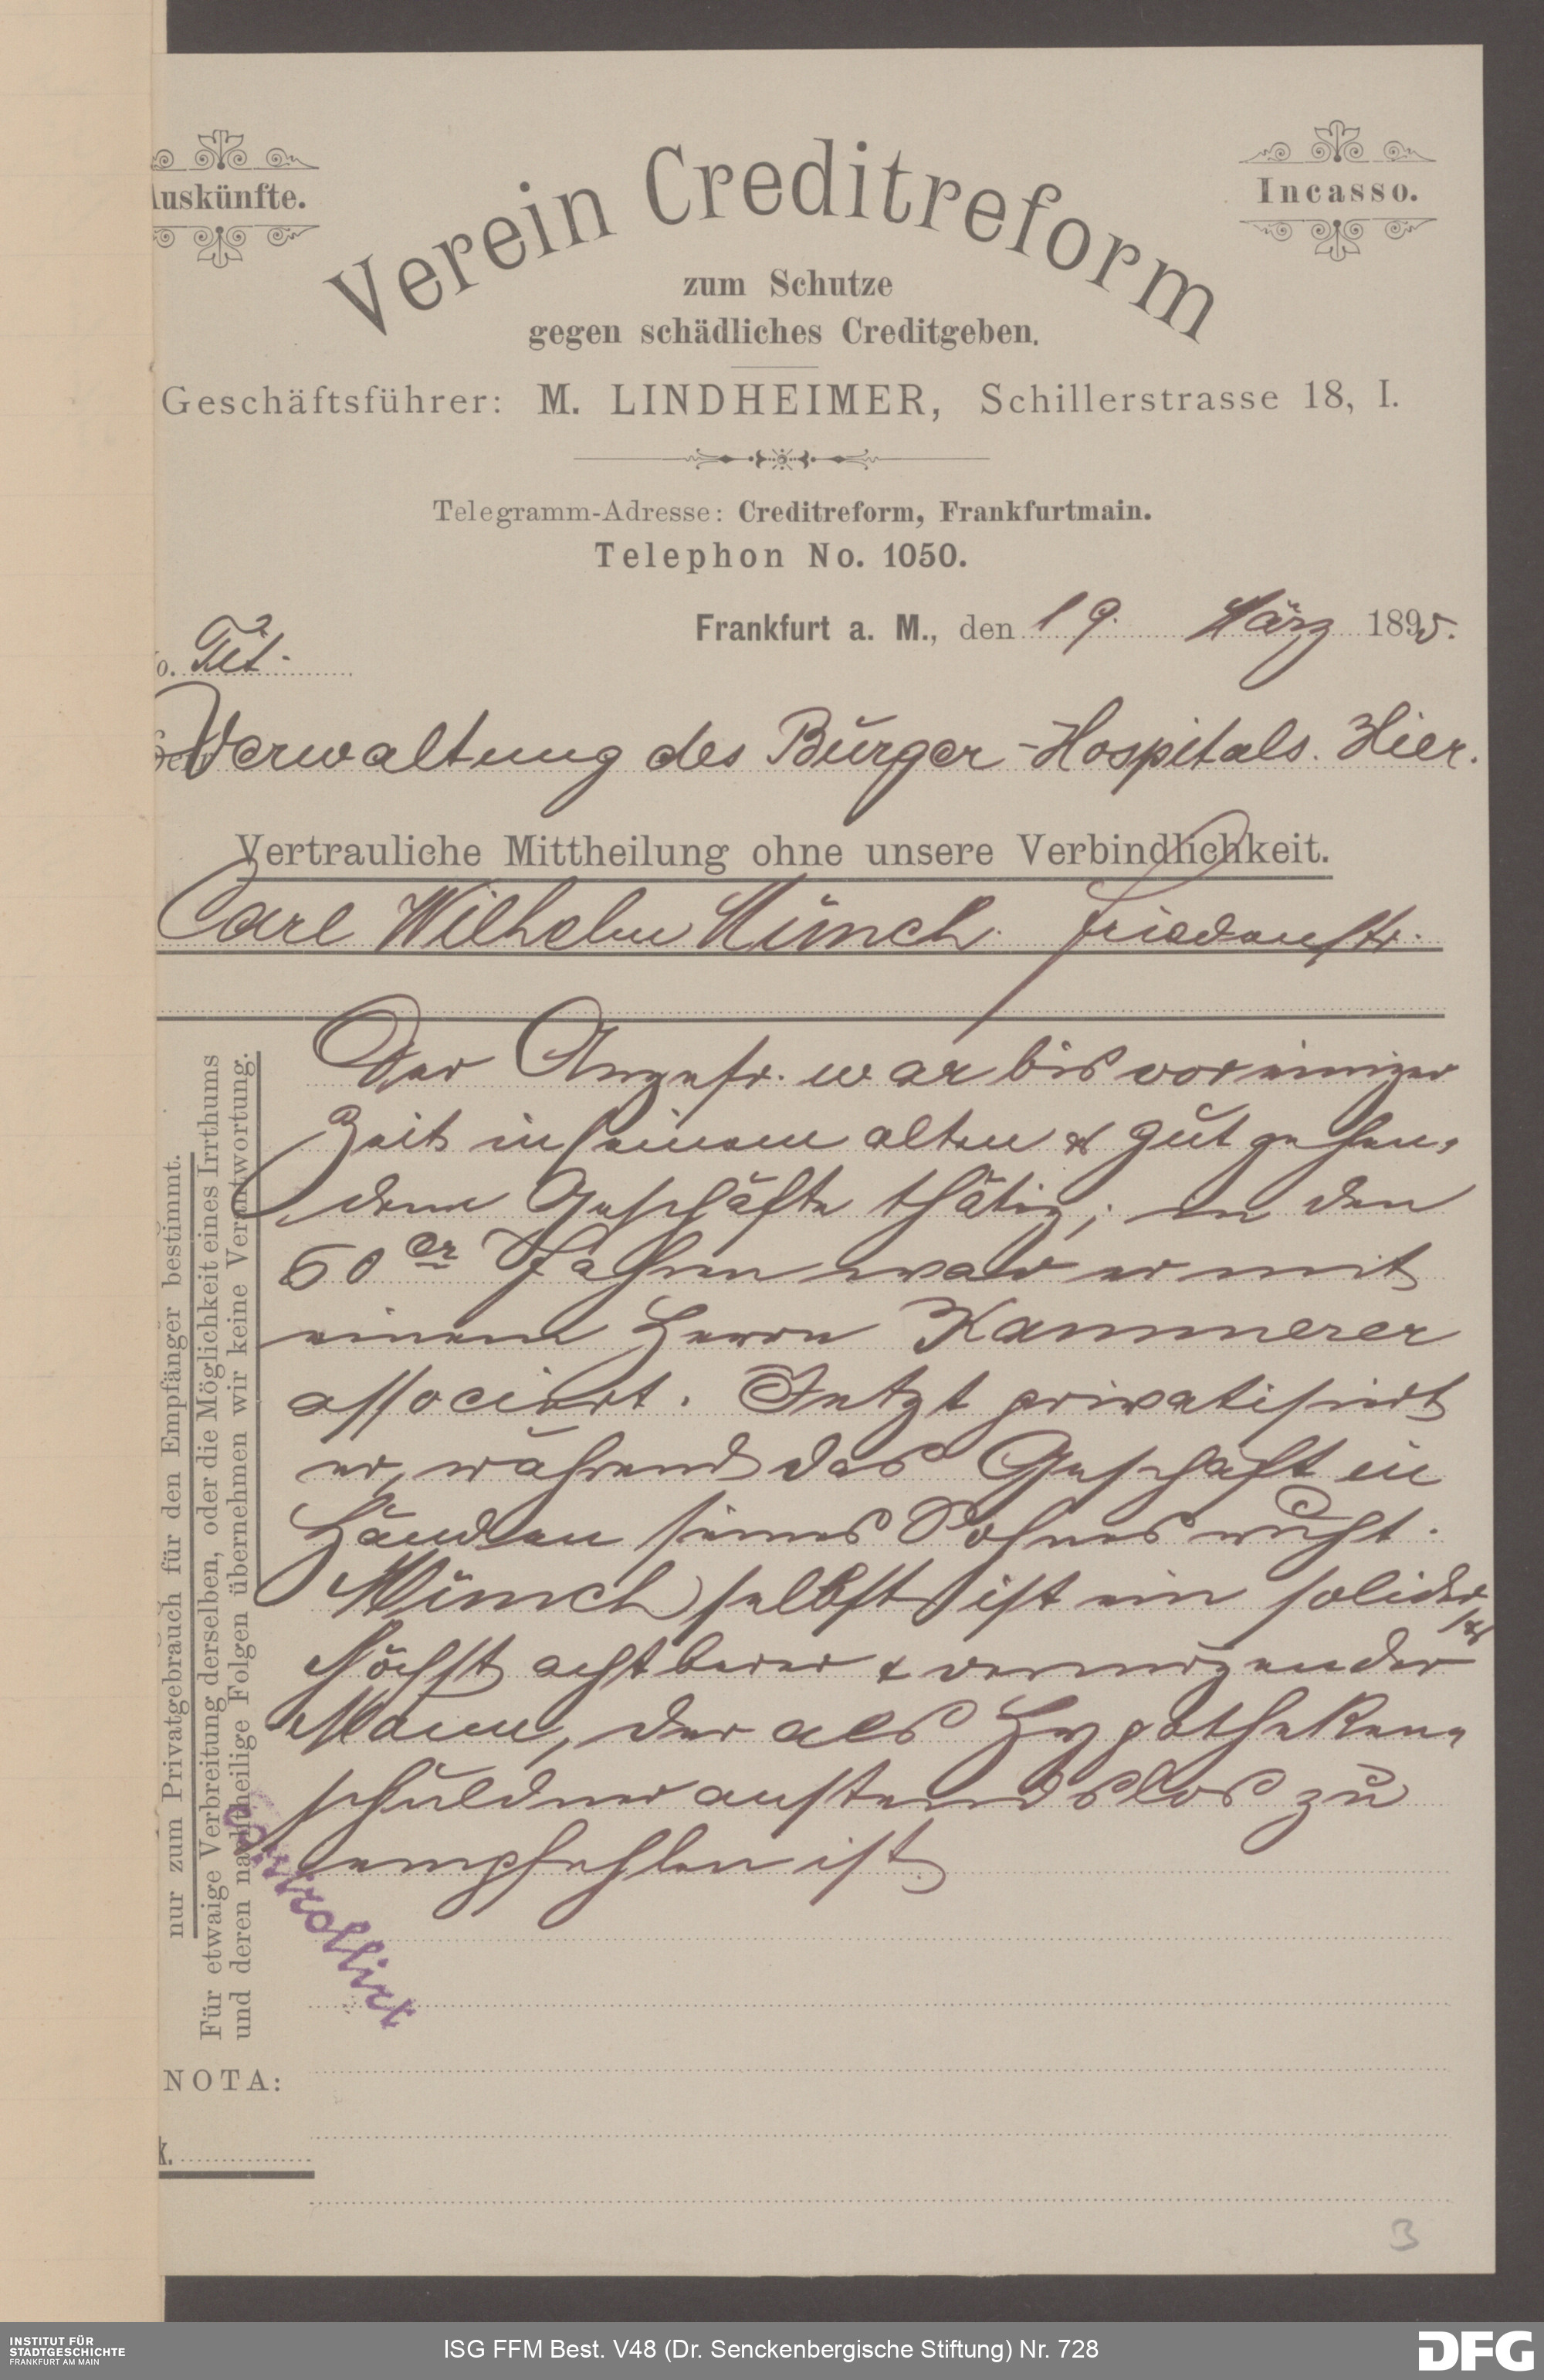 Auskünfte.
Incasso.
Verein Creditreform
zum Schutze
gegen schädliches Creditgeben.
Geschäftsführer: M. LINDHEIMER, Schillerstrasse 18, I.
Telegramm-Adresse: Creditreform, Frankfurtmain.
Telephon No. 1050.
Frankfurt a. M., den 19. März 1895.
o. Tit.
Verwaltung des Bürger-Hospitals. Hier.
Vertrauliche Mittheilung ohne unsere Verbindlichkeit.
Carl Wilhelm Münch. Friedenstr.
Der Angefr. war bis vor einiger
Zeit in seinem alten & gut gehen-
dem Geschäfte thätig; in den
60er Jahren war er mit
einem Herrn Kammerer
associert. Jetzt privatisirt
er, während das Geschäft in
Händen seines Sohnes ruht.
Münch selbst ist ein solider,
höchst achtbarer & vermögender
Mann, der als Hypotheken-
schuldner anstandslos zu
empfehlen ist.
nur zum Privatgebrauch für den Empfänger bestimmt.
Für etwaige Verbreitung derselben, oder die Möglichkeit eines Irrthums
und deren nachtheilige Folgen übernehmen wir keine Verantwortung.
Controllirt
NOTA:
k.
3
INSTITUT FÜR
STADTGESCHICHTE
FRANKFURT AM MAIN
ISG FFM Best. V48 (Dr. Senckenbergische Stiftung) Nr. 728
DFG